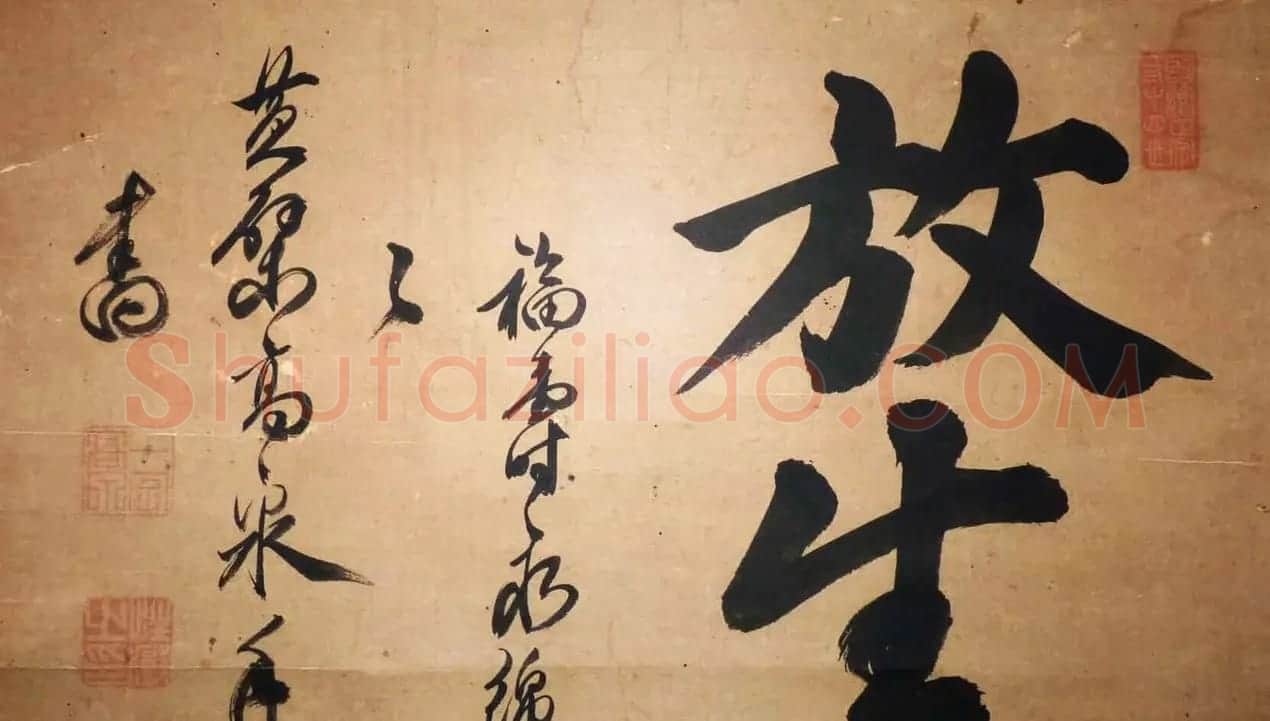 放生
福壽永綿
之
黄檗高泉手
書
Shufaziliao.COM